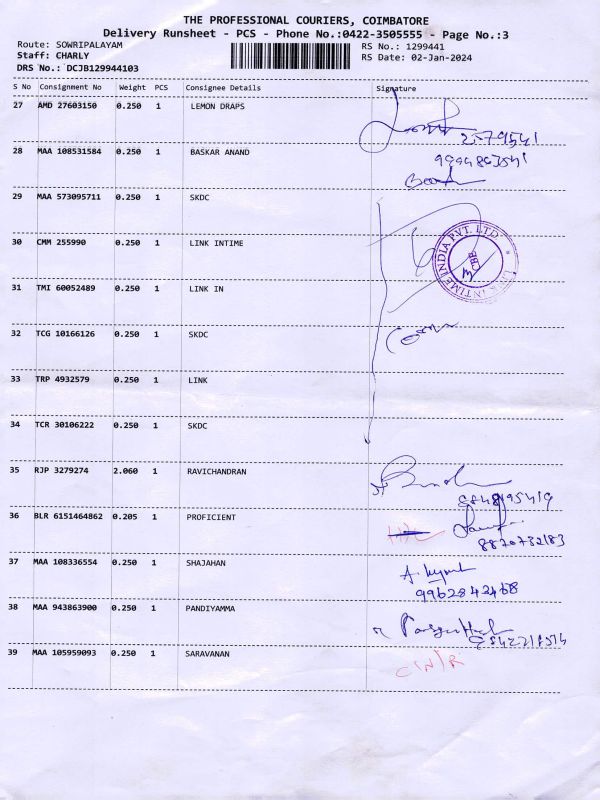 THE PROFESSIONAL COURIERS, COIMBATORE
Delivery Runsheet - PCS - Phone No.:0422-3505555 - Page No.:3
Route: SOWRIPALAYAM RS No.: 1299441
Staff: CHARLY RS Date: 02-Jan-2024
DRS No.: DCJB129944103
S No Consignment No Weight PCS Consignee Details Signature
27 AMD 27603150 0.250 1 LEMON DRAPS
28 MAA 108531584 0.250 1 BASKAR ANAND
29 MAA 573095711 0.250 1 SKDC
30 CMM 255990 0.250 1 LINK INTIME
LINK INTIME INDIA PVT. LTD
CBE
31 TMI 60052489 0.250 1 LINK IN
32 TCG 10166126 0.250 1 SKDC
33 TRP 4932579 0.250 1 LINK
34 TCR 30106222 0.250 1 SKDC
35 RJP 3279274 2.060 1 RAVICHANDRAN
36 BLR 6151464862 0.205 1 PROFICIENT
8870732183
37 MAA 108336554 0.250 1 SHAJAHAN
9962842468
38 MAA 943863900 0.250 1 PANDIYAMMA
39 MAA 105959093 0.250 1 SARAVANAN